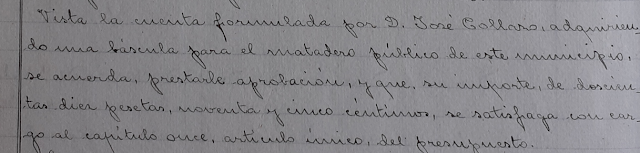 Vista la cuenta formulada por D. José Collazo, adquirien-
do una báscula para el matadero público de este municipio,
se acuerda, prestarle aprobación, y que, su importe, de doscien-
tas diez pesetas, noventa y cinco céntimos, se satisfaga con car-
go al capítulo once, artículo único, del presupuesto.